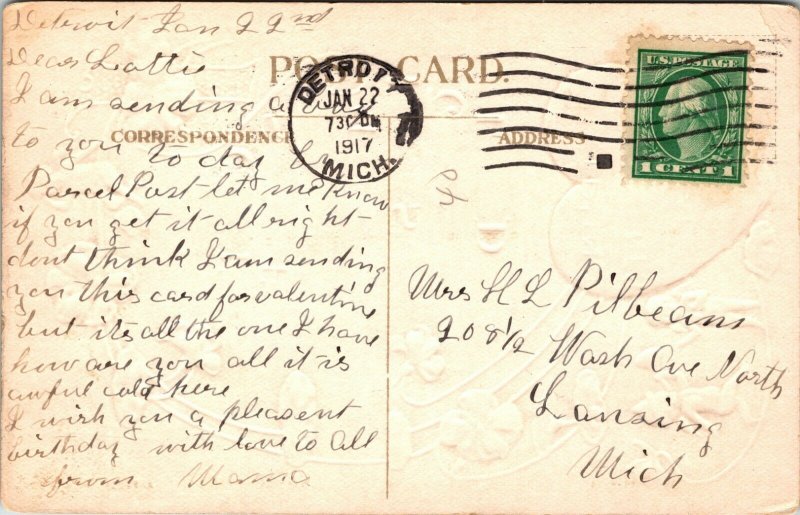 Detroit Jan 22nd
Dear Lottie
I am sending a
to you to day by
Parcel Post let me know
if you get it all right
dont think I am sending
you this card for valentine
but its all the one I have
how are you all it is
awful cold here
I wish you a pleasent
birthday with love to all
from Mama
POST CARD.
CORRESPONDENCE
ADDRESS
DETROIT
JAN 22
730 PM
1917
MICH.
U.S. POSTAGE
1 CENT 1
Mrs H L Pilbeam
208 1/2 Wash Ave North
Lansing
Mich